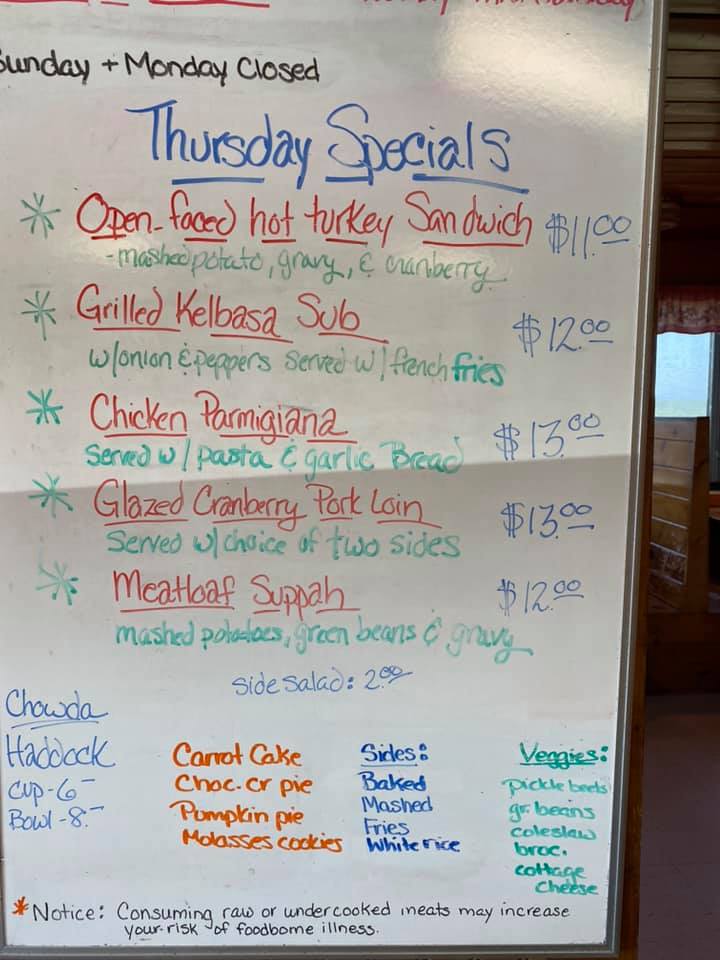 Sunday + Monday Closed
Thursday Specials
* Open-faced hot turkey Sandwich $11.00
-mashed potato, gravy, & cranberry
* Grilled Kelbasa Sub $12.00
w/onion & peppers served w/ french fries
* Chicken Parmigiana $13.00
Served w/ pasta & garlic Bread
* Glazed Cranberry Pork Loin $13.00
Served w/ choice of two sides
* Meatloaf Suppah $12.00
mashed potatoes, green beans & gravy
side salad: 2.00
Chowda
Haddock
cup-6-
Bowl-8.-
Carrot Cake
Choc. cr pie
Pumpkin pie
Molasses cookies
Sides:
Baked
Mashed
Fries
White rice
Veggies:
pickle beets
gr. beans
coleslaw
broc.
cottage
cheese
* Notice: Consuming raw or undercooked meats may increase
your risk of foodborne illness.